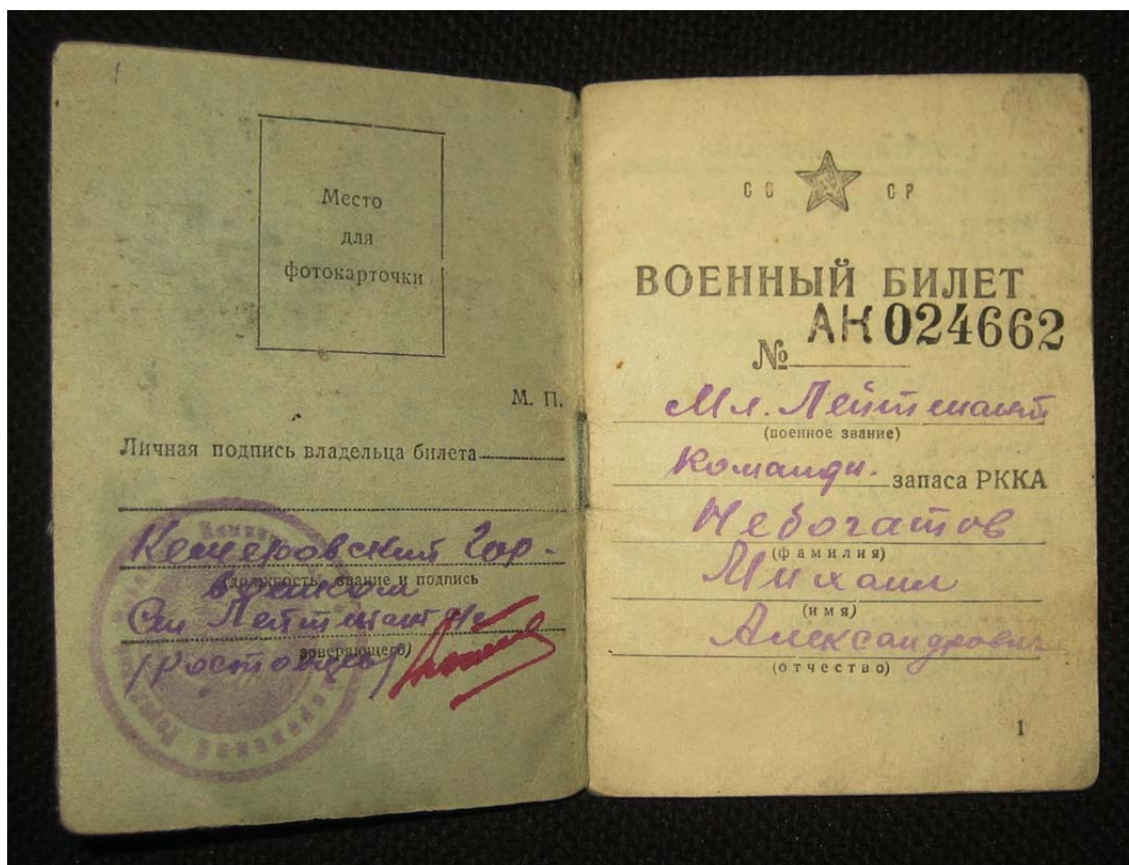 Место
для
фотокарточки
М. П.
Личная подпись владельца билета
Кемеровский Гор-
(должность, звание и подпись
военком
Ст. Лейтенант
заверяющего)
/Ростовцев/
СС СР
ВОЕННЫЙ БИЛЕТ
№ АН 024662
Мл. Лейтенант
(военное звание)
Команди. запаса РККА
Небогатов
(фамилия)
Михаил
(имя)
Александрович
(отчество)
1